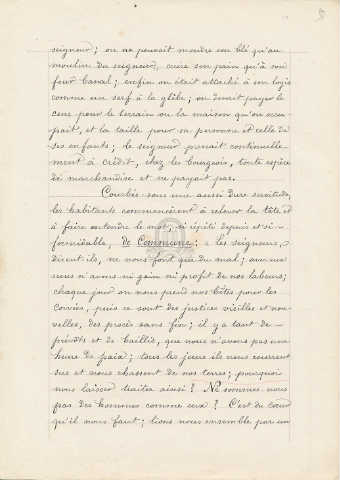 seigneur; on ne pouvait moudre son blé qu'au
moulin du seigneur, cuire son pain qu'à son
four banal; enfin on était attaché à son logis
comme un serf à la glèbe; on devait payer le
cens pour le terrain ou la maison qu'on occu-
pait, et la taille pour sa personne et celle de
ses enfants; le seigneur prenait continuelle-
ment à crédit, chez les bourgeois, toute espèce
de marchandise et ne payait pas.
Courbés sous une aussi dure servitude,
les habitants commencèrent à relever la tête et
à faire entendre le mot, si répété depuis et si
formidable, de Commune: « les seigneurs,
dirent-ils, ne nous font que du mal; avec eux
nous n'avons ni gain ni profit de nos labeurs;
chaque jour on nous prend nos bêtes pour les
corvées, puis ce sont des justices vieilles et nou-
velles, des procès sans fin; il y a tant de
prévôts et de baillis, que nous n'avons pas une
heure de paix; tous les jours ils nous courent
sus et nous chassent de nos terres; pourquoi
nous laisser traiter ainsi? Ne sommes-nous
pas des hommes comme eux? C'est du cœur
qu'il nous faut; lions-nous ensemble par un